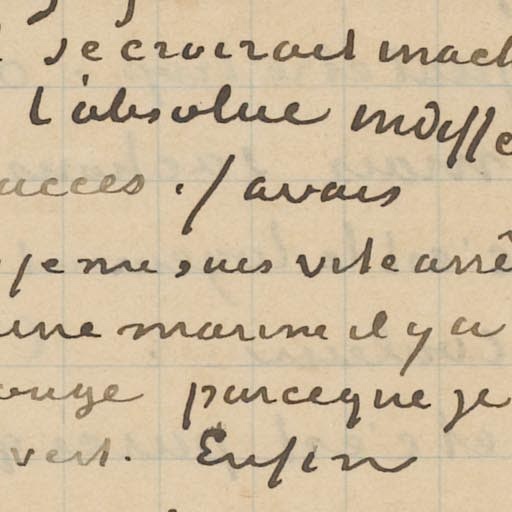 se croirait mach
l'absolue indiffe
acces. J'avais
je me suis vite arrê
une marine il y a
ouge parceque je
vert. Enfin